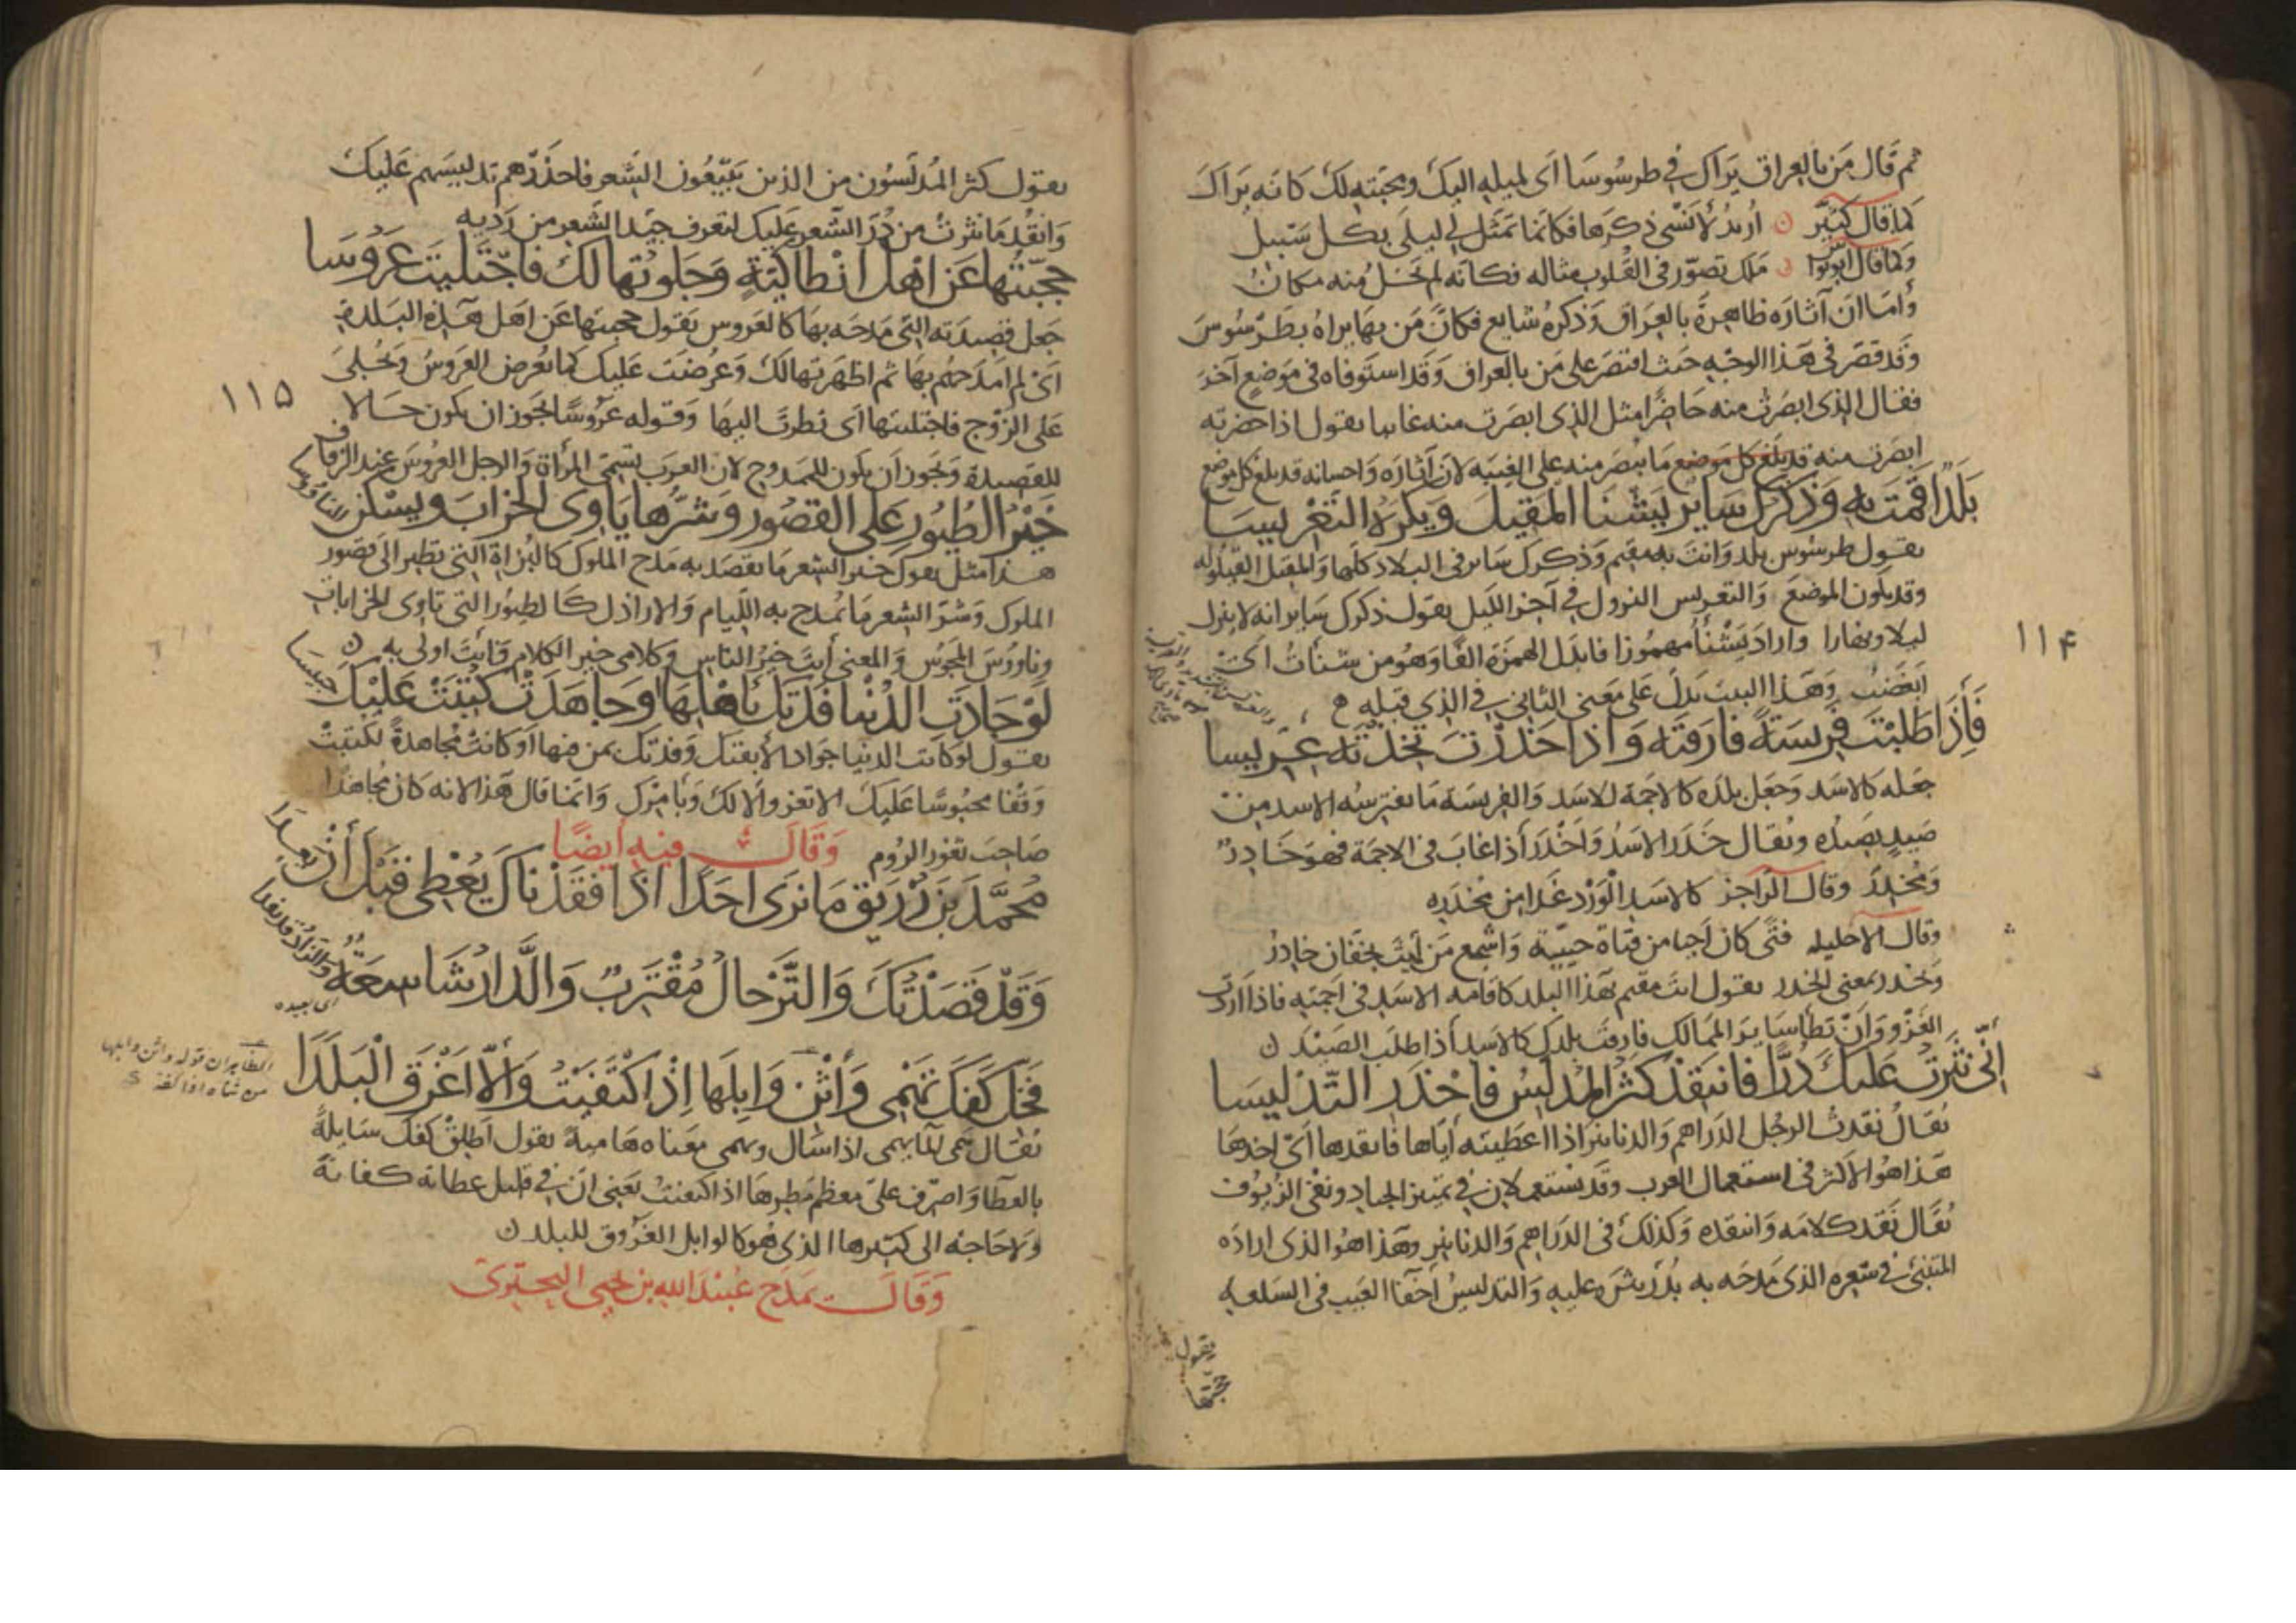 ثم قَال مَن بالعراق يَراك في طرسُوسَا اَى لميله اليك ومحبّته لك كانه يَراك
كما قال كثيّر ن اُريدُ لأنسى ذكرها فكانما تمَثّل لي ليلَى بكل سَبيل
وكما قال ابونواس ملك تصوّر في القلوب مثاله فكانّه لم يَخلُ منه مكانُ
وامّا انّ آثاره ظاهِرةٌ بالعِراق وَذكره شايع فكانّ مَن بها يراهُ بطَرسُوسَ
وقد قصّر في هَذا الوجه حيث اقتصَر على مَن بالعراق وَقد استوفاه في مَوضعٍ آخر
فقال الذى ابصَرتُ منه حَاضرًا مثل الذى ابصَرت منه غايبا يقول اذا حضرته
ابصَرت منه قد بلغ كل مَوضع مَا يُبصَر منه على الغيبه لانّ آثاره وَاحسانه قد بلغ كل موضع
بَلَدٌ اَقَمتَ بهِ وَذكرُكَ سَايرٌ يَشْنَا المَقِيلَ وَيكرَهُ التَّعْرِيسَا
يقول طرسُوس بلد وَانتَ به مقيم وَذكرك سَاير في البلاد كلها وَالمقيل القيلوله
وقد يكون الموضعَ وَالتعريس النزول في آخر الليل يقول ذكرك سَاير انه لا ينزل
ليلا ونهارا واراد يَشْنَأُ مهمُوزا فابدَل الهمزة الفًا وَهُو من شنأتُ اى
ابغَضتُ وَهَذا البيت يَدلّ على مَعنى الثاني في الذى قبله
فَإذَا طَلَبْتَ فَرِيسَةً فَارَقتَه وَاذا خَدَرْتَ تَخِذْتَه عِرّيسا
جَعله كالاسَد وَجَعل بلدَه كالاجمَة للاسَد وَالفريسَة مَا يفترسُه الاسد من
صَيدٍ يصيدُه ويُقال خَدَر الاسَدُ وَاَخْدَرَ اذا غابَ في الاجمَة فهوَ خَادِرٌ
وَمُخدِرٌ وقال الراجز كالاسَدِ الْوَرْدِ غَدا من مُخدَرِه
وقال الاخيليه فتًى كان اَحيا من فتاةٍ حَييّةٍ وَاشجع مَن لَيثٍ بخَفّان خادِرُ
وَخدر بمعنى اخدر يقول انتَ مقيم بهَذا البلد كاقامه الاسَد في اَجمَتِه فاذا اردتَ
الغَزوَ وَاَنْ تطأ سَاير المَمالك فارقتَ بلدَك كالاسَد اذا طلبَ الصَيْدَ ن
اِنّي نَثَرتُ عَلَيكَ دُرًّا فانتَقِدْ كَثُر المُدلّسُ فاحْذَرِ التّدْليسَا
يُقالُ نقَدتُ الرجُل الدَراهِم وَالدنانير اذا اعطَيتَه ايّاها فانتقدها اَىْ اخذها
هَذا هُو الاكثر في استعمال العرب وقد يُستعملان في تمييز الجياد ونَفْى الزُيوُف
يُقَال نَقَد كلامَه وَانتقَده وَكذلك في الدرَاهِم وَالدنانير وَهَذا هُو الذى ارادَه
المتنبّي في شعره الذى مَدحَه به بدُرّ ينثر عليه وَالتدليسُ اخفآ العَيب في السَلعه
يقول
حجبتها
١١۴
يقول كثر المُدلّسُون من الذين يَبيّعُون الشَعر فاحذَرهم تدليسَهم عَليك
وَانقُد مَا نثرتُ من دُرّ الشّعر عَليك لتعرف جيّد الشِعر من رَدِيه
حجّبْتُها عَن اهل انْطاكِيَةٍ وَجَلوتُها لك فاجْتَليتَ عَرُوْسَا
جَعل قصيدَته التي مَدحَه بهَا كالعَروس يَقول حجبتها عَن اهل هَذه البَلدة
اَىْ لم امدحهُم بهَا ثم اظهرتها لكَ وَعُرضَت عَليك كما تعرض العَروسُ وَتُجلىَ
عَلى الزّوج فاجتليتها اَى نظرتَ اليهَا وَقوله عَروسًا يجوز ان يكون حَالا
للقصيدة وَيجوز اَن يكون للممدوح لانّ العرَب تسمى المرأة وَالرجل العَروُسَ عند الزفاف
خَيْرُ الطُيُورِ عَلى القصُور وَشَرُّها يَاوِى الخرابَ ويسْكن الناوُوسا
هَذا مثل يقول خير الشعر مَا يقصَد به مَدح الملوك كالبُزاة التي تطير الىَ قصُور
الملوك وَشرّ الشعر مَا يُمدح به اللَيام وَالاراذل كالطيُور التي تاوى الخرابات
وناووُسَ المجوُس وَالمعنى أنتَ خيرُ الناسِ وكلامى خير الكلام فانتَ اولى به ن
لَوْ جَادَتِ الدُنْيا فَدَتكَ بأهْلِها وجَاهَدَتْ كُتِبَتْ عَلَيْك حَبِيسَا
يقول لو كانت الدنيا جَوادا لأبقتك وَفدتك بمن فيها او كانتْ مُجاهدةً لكتبتْ
وَقفا محبُوسًا عَليك لا تغزو الّا لك وَبامرك وَانما قال هَذا لانه كَان مُجاهدًا
صَاحِبَ ثغور الروم وَقَالَ فيه أيضًا
مُحمَّدَ بنَ زُرَيقٍ مَا نرَى اَحَدًا اذَا فَقَدْناكَ يُعْطِى قَبْل أنْ يعِدَا
وَقَدْ قَصَدْتُكَ وَالتَّرْحالُ مُقْتَرِبٌ وَالَّدارُ شَاسِعَةٌ وَالزادُ قد نفدا
اى بعيده
فَخَلِّ كَفَّكَ تَهْمِى وَأثْنِ وَابِلَها اِذَا اكْتَفَيْتُ وَالّا اَغْرَقَ الْبَلَدَا
الظاهران قوله واثن وابلها
من ثناه اذا كفه
يُقال هَمى المآ يهمى اذا سَال وهمى معناه هَا منه يقول اَطلِقْ كفك سَايلةً
بالعطآ وَاصرف عنّى معظم مَطرهَا اذا اكتفيتُ يَعنى انّ في قليل عطائه كفاية
وَلا حَاجة الى كثيرها الذى هُو كالوابل المغرُوق للبلد ن
وَقَالَ يَمدَح عُبيْدَ الله بن يحيى البحترى
١١۵